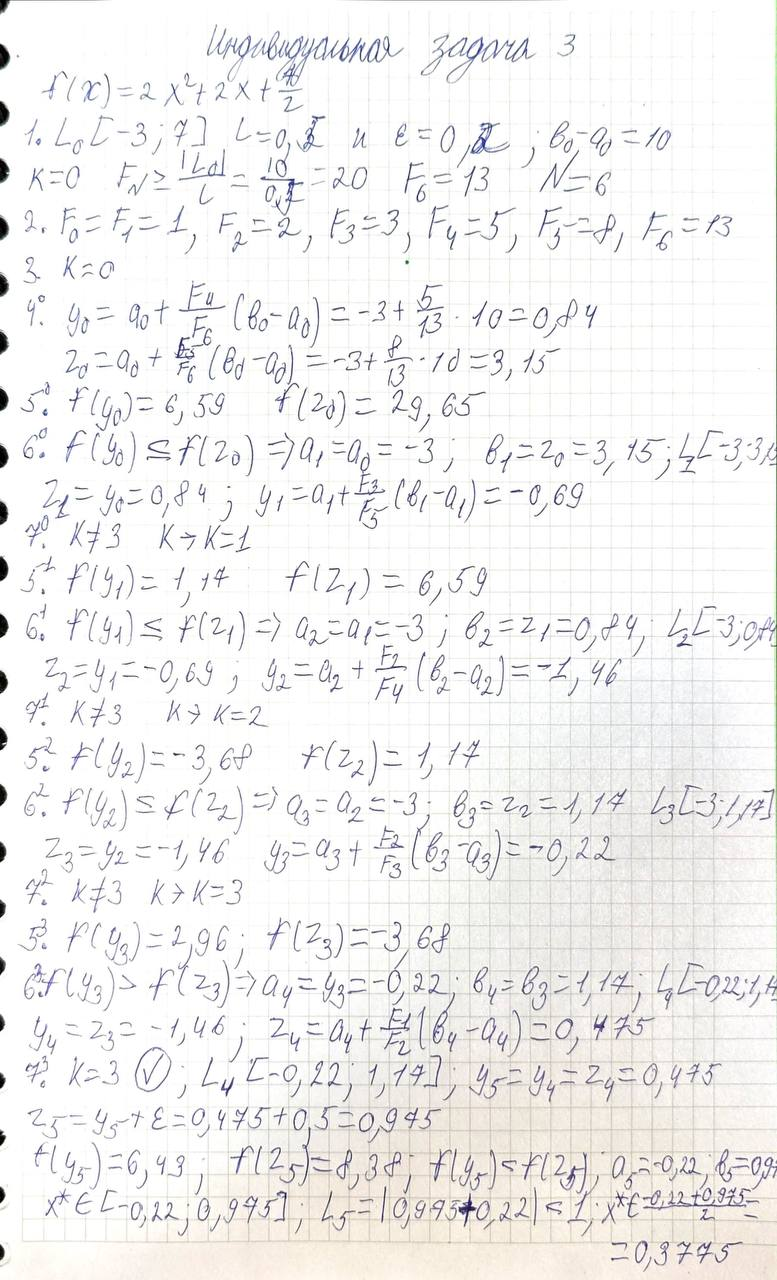 Индивидуальная задача 3
f(x)=2x²+2x+7/2
1. L₀[-3;7] l=0,5 и ε=0,2; b₀-a₀=10
K=0 F_N ≥ |L₀|/l = 10/0,5 = 20 F₆=13 N=6
2. F₀=F₁=1, F₂=2, F₃=3, F₄=5, F₅=8, F₆=13
3. K=0
4⁰. y₀ = a₀ + F₄/F₆ (b₀-a₀) = -3 + 5/13 · 10 = 0,84
z₀ = a₀ + F₅/F₆ (b₀-a₀) = -3 + 8/13 · 10 = 3,15
5⁰. f(y₀)=6,59 f(z₀)=29,65
6⁰. f(y₀) ≤ f(z₀) => a₁=a₀=-3; b₁=z₀=3,15; L₁[-3;3,15
z₁=y₀=0,84; y₁=a₁+F₃/F₅ (b₁-a₁)=-0,69
7⁰. K≠3 K→K=1
5¹. f(y₁)=1,17 f(z₁)=6,59
6¹. f(y₁) ≤ f(z₁) => a₂=a₁=-3; b₂=z₁=0,84; L₂[-3;0,84
z₂=y₁=-0,69; y₂=a₂+F₂/F₄ (b₂-a₂)=-1,46
7¹. K≠3 K→K=2
5². f(y₂)=-3,68 f(z₂)=1,17
6². f(y₂) ≤ f(z₂) => a₃=a₂=-3; b₃=z₂=1,17 L₃[-3;1,17]
z₃=y₂=-1,46 y₃=a₃+F₂/F₃ (b₃-a₃)=-0,22
7². K≠3 K→K=3
5³. f(y₃)=2,96; f(z₃)=-3,68
6³. f(y₃) > f(z₃) => a₄=y₃=-0,22; b₄=b₃=1,17; L₄[-0,22;1,17
y₄=z₃=-1,46; z₄=a₄+F₁/F₂ (b₄-a₄)=0,475
7³. K=3 ✓; L₄[-0,22; 1,17]; y₅=y₄=z₄=0,475
z₅=y₅+ε=0,475+0,5=0,975
f(y₅)=6,43; f(z₅)=8,38; f(y₅)<f(z₅); a₅=-0,22; b₅=0,97
x*∈[-0,22; 0,975]; L₅=|0,975+0,22|<1; x*∈ -0,22+0,975/2 =
=0,3775